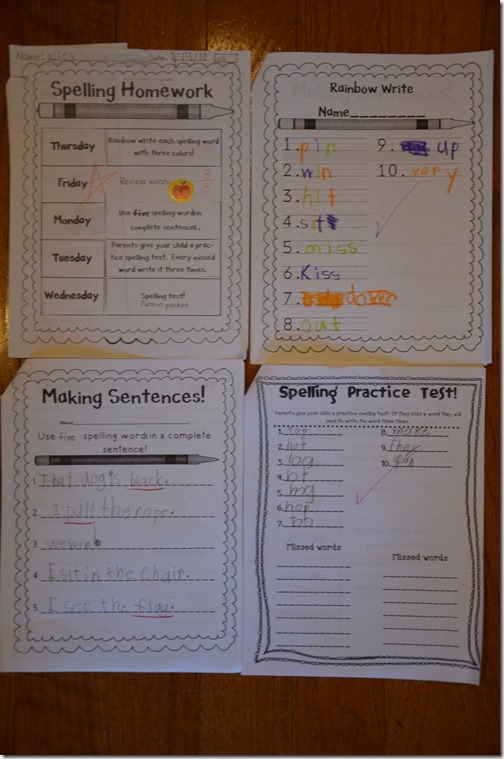 Name: Date:
Spelling Homework
Thursday Rainbow write each spelling word with three colors!
Friday Review words A 3/3
Monday Use five spelling word in complete sentences.
Tuesday Parents give your child a practice spelling test. Every missed word write it three times.
Wednesday Spelling test! Turn in packet.
Rainbow Write
Name________
1. pin
2. win
3. hit
4. sit
5. miss
6. Kiss
7. down
8. out
9. up
10. very
Making Sentences!
Name
Use five spelling words in a complete
sentence!
1. dog is black.
2. I pull the rope.
3. we win
4. I sit in the chair.
5. I see the flag.
Spelling Practice Test!
Parents give your child a practice spelling test! If they miss a word they will
need to write the word three times.
1. top
2. hot
3. log
4. lot
5.
6. hop
7.
8. make
9. they
10.
Missed words
Missed words